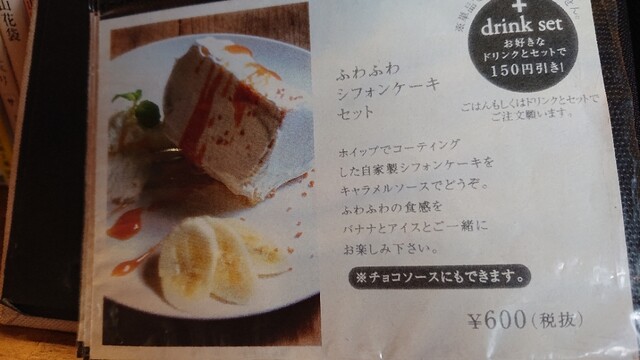 +
drink set
お好きな
ドリンクとセットで
150円引き!
ごはんもしくはドリンクとセットで
ご注文願います。
ふわふわ
シフォンケーキ
セット
ホイップでコーティング
した自家製シフォンケーキを
キャラメルソースでどうぞ。
ふわふわの食感を
バナナとアイスとご一緒に
お楽しみ下さい。
※チョコソースにもできます。
¥600(税抜)